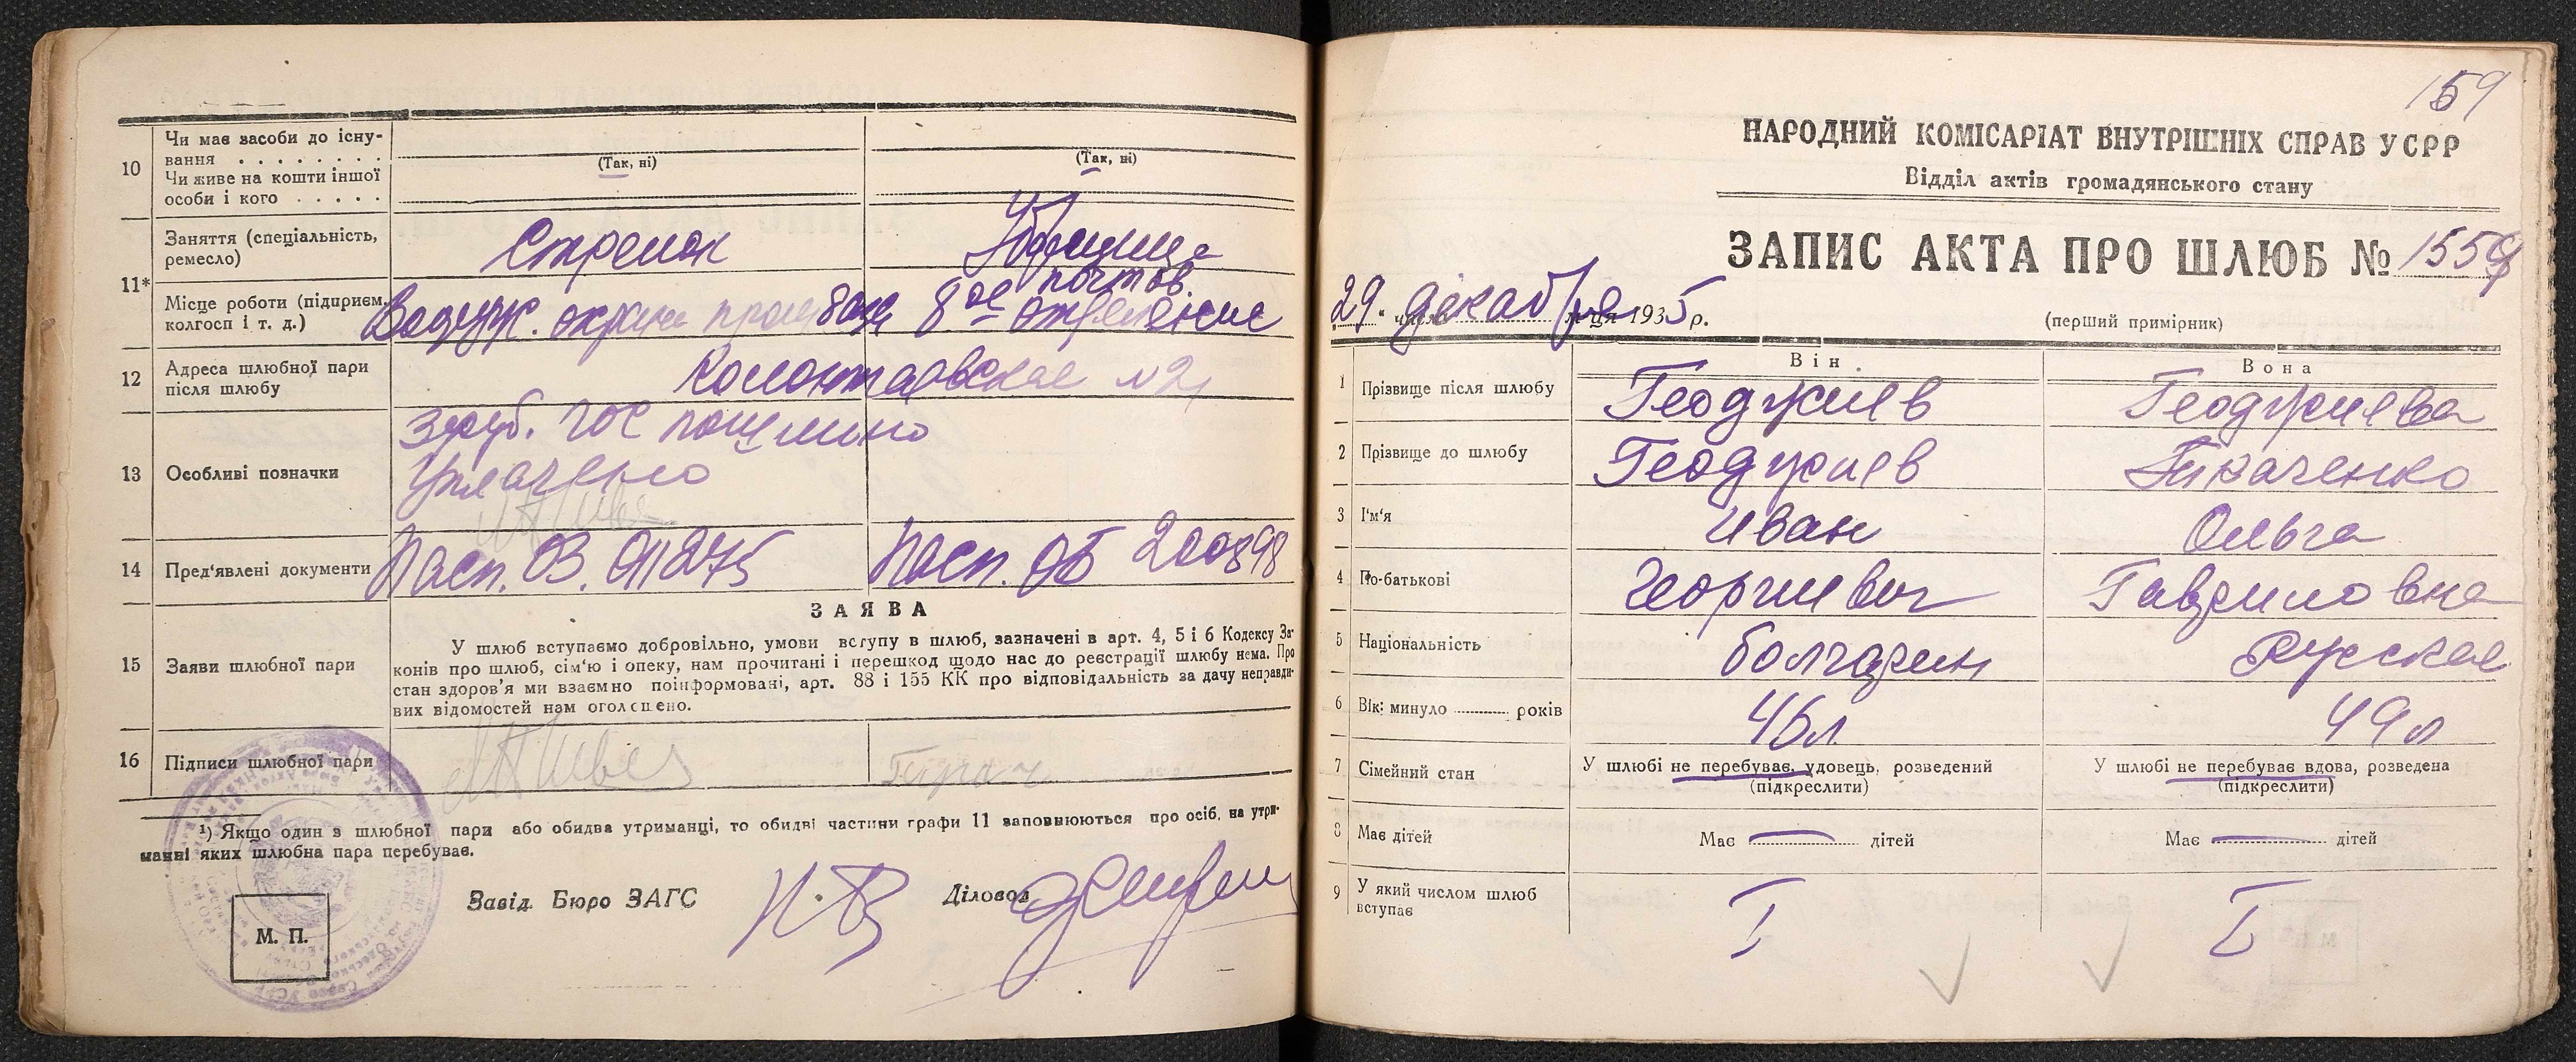 10
Чи має засоби до існу-
вання . . . . . . . .
Чи живе на кошти іншої
особи і кого . . . . .
(Так, ні)
(Так, ні)
11*
Заняття (спеціальність,
ремесло)
Стрелок
Уборщица
Місце роботи (підприєм.
колгосп і т. д.)
охрана
8ое почтов.
отделение
12
Адреса шлюбної пари
після шлюбу
№ 2
13
Особливі позначки
3 руб. гос пошлино
уплачено
14
Пред'явлені документи
Пасп. ОЗ. 911275
Пасп. ОБ 200898
15
Заяви шлюбної пари
ЗАЯВА
У шлюб вступаємо добровільно, умови вступу в шлюб, зазначені в арт. 4, 5 і 6 Кодексу За-
конів про шлюб, сім'ю і опеку, нам прочитані і перешкод щодо нас до реєстрації шлюбу нема. Про
стан здоров'я ми взаємно поінформовані, арт. 88 і 155 КК про відповідальність за дачу неправди-
вих відомостей нам оголошено.
16
Підписи шлюбної пари
¹) Якщо один з шлюбної пари або обидва утриманці, то обидві частини графи 11 заповнюються про осіб, на утри-
манні яких шлюбна пара перебуває.
Завід. Бюро ЗАГС
Діловод
М. П.
159
НАРОДНИЙ КОМІСАРІАТ ВНУТРІШНІХ СПРАВ УСРР
Відділ актів громадянського стану
ЗАПИС АКТА ПРО ШЛЮБ № 1559
29 " числа декабря м-ця 1935 р.
(перший примірник)
Він
Вона
1 Прізвище після шлюбу
Геоджиев
Геоджиева
2 Прізвище до шлюбу
Геоджиев
Ткаченко
3 І'м'я
Иван
Ольга
4 По-батькові
Георгиевич
Гавриловна
5 Національність
болгарин
Русская
6 Вік: минуло ........ років
46 л
49 л
7 Сімейний стан
У шлюбі не перебуває, удовець, розведений
(підкреслити)
У шлюбі не перебуває вдова, розведена
(підкреслити)
8 Має дітей
Має — дітей
Має — дітей
9 У який числом шлюб
вступає
I
I